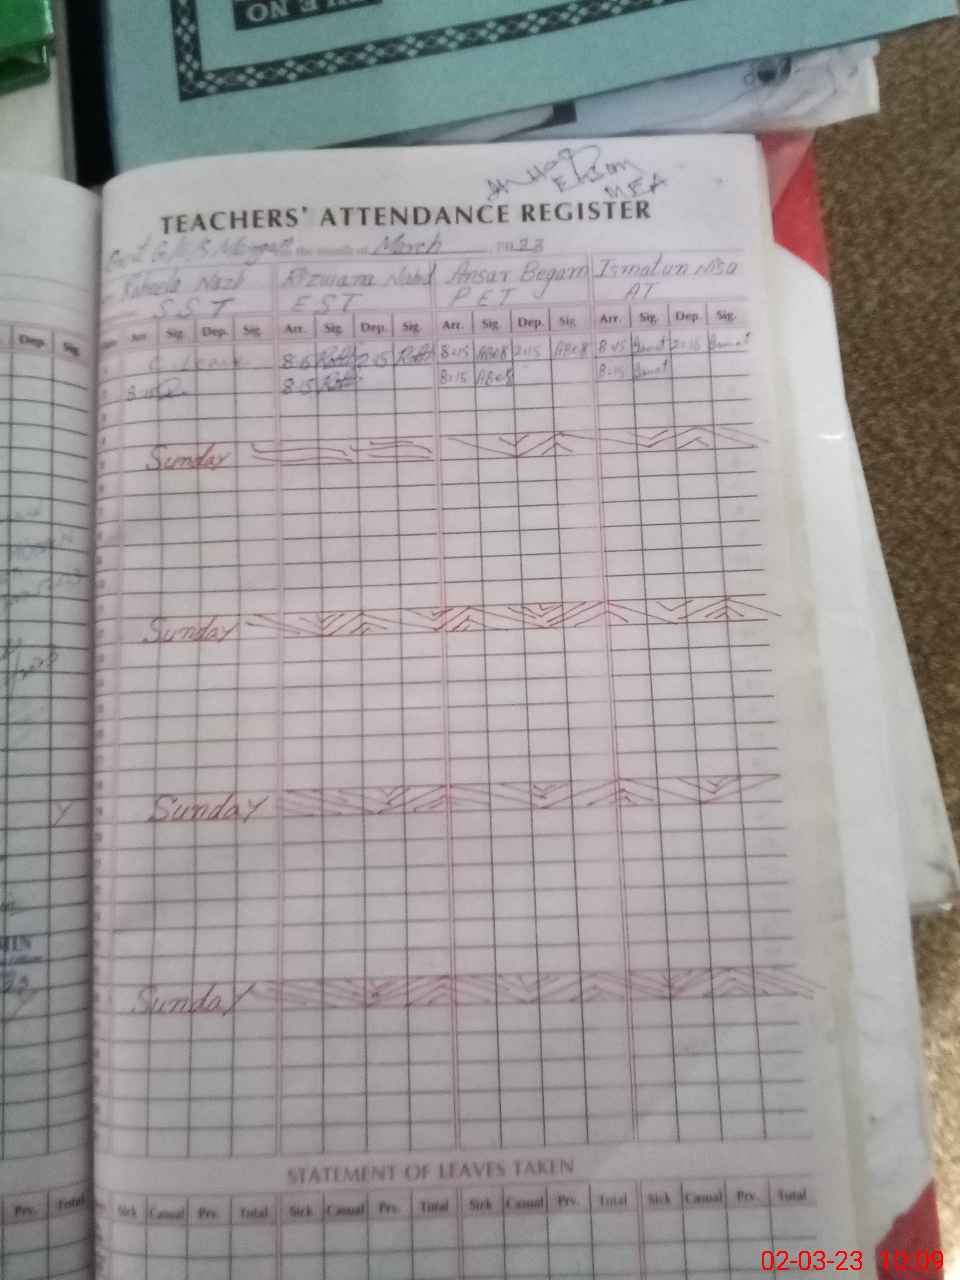 FILE NO
Ehson
MEA
TEACHERS' ATTENDANCE REGISTER
Govt G/M/S for the month of March 2023
Raheela Nazli Rizwana Nabil Ansar Begam Ismatun Nisa
SST EST PET AT
Dep. Sig. Date Arr. Sig. Dep. Sig. Arr. Sig. Dep. Sig. Arr. Sig. Dep. Sig. Arr. Sig. Dep. Sig.
C Leave 8:15 2:15 8:15 ABeg 2:15 ABeg 8:15 Ismat 2:15 Ismat
8:15 8:15 8:15 ABeg 8:15 Ismat
Sunday
Sunday
Sunday
Sunday
STATEMENT OF LEAVES TAKEN
Prv. Total Sick Casual Prv. Total Sick Casual Prv. Total Sick Casual Prv. Total Sick Casual Prv. Total
02-03-23 10:09